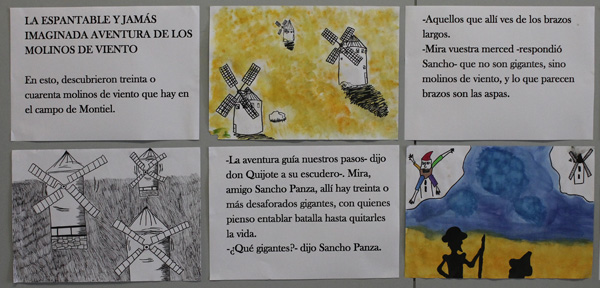 LA ESPANTABLE Y JAMÁS
IMAGINADA AVENTURA DE LOS
MOLINOS DE VIENTO
En esto, descubrieron treinta o
cuarenta molinos de viento que hay en
el campo de Montiel.
-La aventura guía nuestros pasos- dijo
don Quijote a su escudero-. Mira,
amigo Sancho Panza, allí hay treinta o
más desaforados gigantes, con quienes
pienso entablar batalla hasta quitarles
la vida.
-¿Qué gigantes?- dijo Sancho Panza.
-Aquellos que allí ves de los brazos
largos.
-Mira vuestra merced -respondió
Sancho- que no son gigantes, sino
molinos de viento, y lo que parecen
brazos son las aspas.